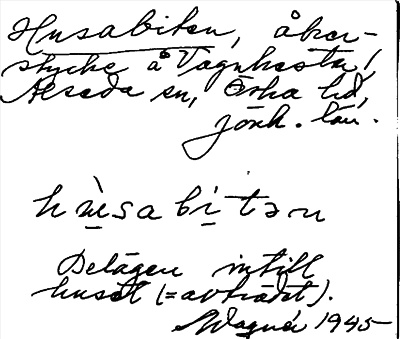 Husabiten, åker-
stycke å Vagnhästa,
Alseda sn, Östra hd,
Jönk. län.
hu̠̇̀sabi̠tən
Belägen intill
huset (= avträdet).
Wagnér 1945